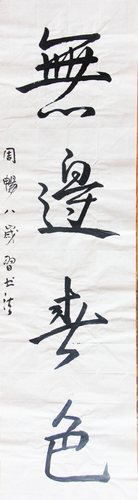 無邊春色
周暢八歲習書法